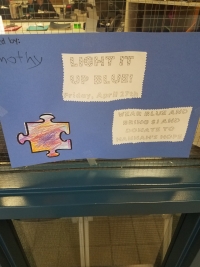 LIGHT IT
UP BLUE!
Friday, April 17th
WEAR BLUE AND
BRING $1 AND
DONATE TO
HANNAH'S HOPE